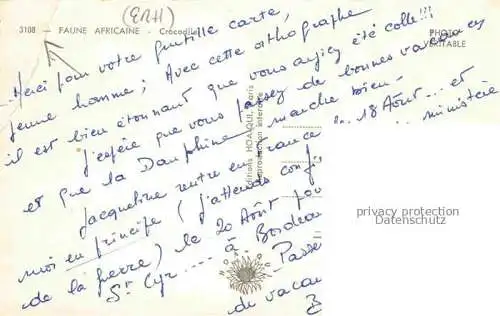 (ERH)
3108 — FAUNE AFRICAINE - Crocodile
PHOTO
VÉRITABLE
Merci pour votre gentille carte,
jeune homme; Avec cette orthographe
il est bien étonnant que vous ayiez été collé!!!
J'espère que vous passez de bonnes vacances
et que la Dauphine marche bien.
Jacqueline rentre en France le 18 Août... et
moi en principe (j'attends conf
ministère
de la guerre) le 20 Août pou
St Cyr.... à Bordeau
Passe
de vacan
B
Editions HOA-QUI, Paris
Reproduction interdite
HOA QUI
privacy protection
Datenschutz